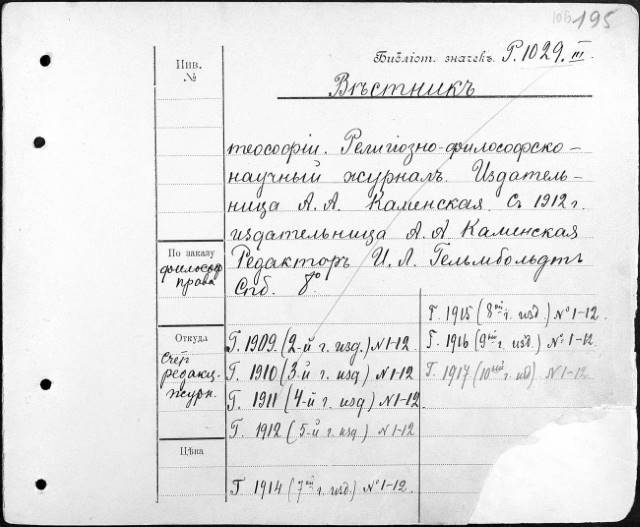 195
Библіот. значекъ. Р.1029.III.
Инв.
№
Вѣстникъ
теософіи. Религіозно-философско-
научный журналъ. Издатель-
ница А. А. Каменская. Съ 1912 г.
издательница А. А. Каменская
Редакторъ И. Л. Гельмбольдтъ
Спб. 8°.
По заказу
философ
права
Откуда
Счет
редакц.
журн.
Цѣна
Г. 1909. (2-й г. изд.) N 1-12
Г. 1910 (3-й г. изд) N 1-12
Г. 1911 (4-й г. изд) N 1-12.
Г. 1912 (5-й г. изд) N 1-12
Г 1914 (7ый г. изд.) № 1-12.
Г. 1915 (8ый г. изд.) № 1-12.
Г. 1916 (9ый г. изд) №: 1-12.
Г. 1917 (10ый г. изд) № 1-12.